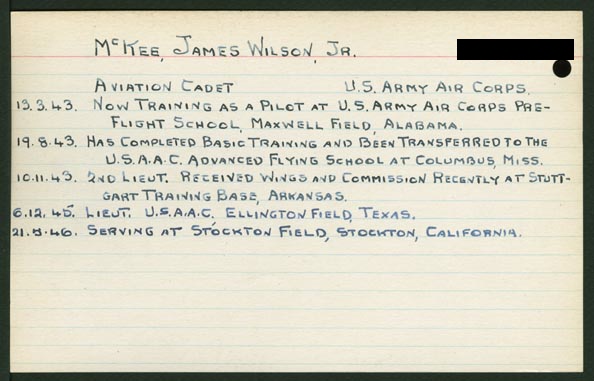 McKee, James Wilson, Jr.
Aviation Cadet U.S. Army Air Corps.
13.3.43. Now Training as a Pilot at U.S. Army Air Corps Pre-
Flight School, Maxwell Field, Alabama.
19.8.43. Has Completed Basic Training and Been Transferred to the
U.S.A.A.C. Advanced Flying School at Columbus, Miss.
10.11.43. 2nd Lieut. Received Wings and Commission Recently at Stutt-
gart Training Base, Arkansas.
6.12.45. Lieut. U.S.A.A.C. Ellington Field, Texas.
46. Serving at Stockton Field, Stockton, California.